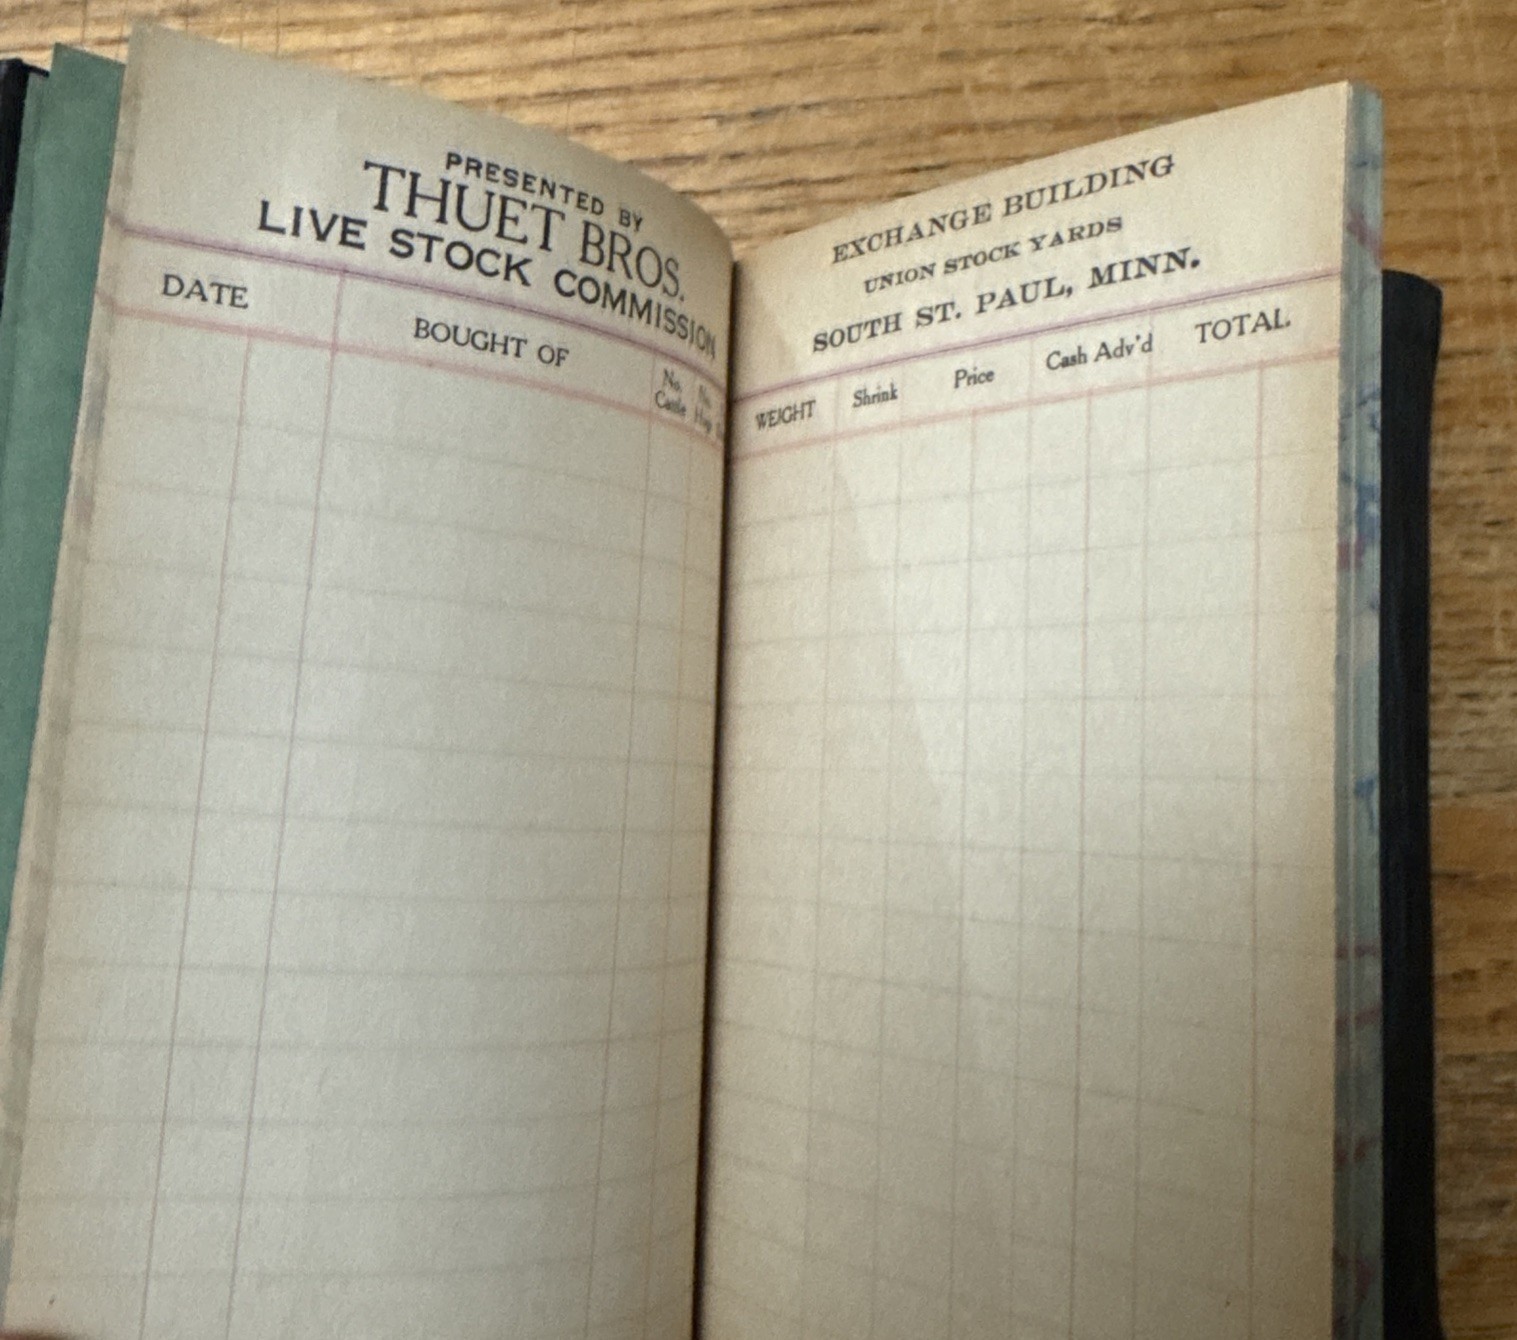 PRESENTED BY
THUET BROS.
LIVE STOCK COMMISSION
DATE
BOUGHT OF
No.
Cattle
No.
Hogs
EXCHANGE BUILDING
UNION STOCK YARDS
SOUTH ST. PAUL, MINN.
WEIGHT Shrink Price Cash Adv'd TOTAL